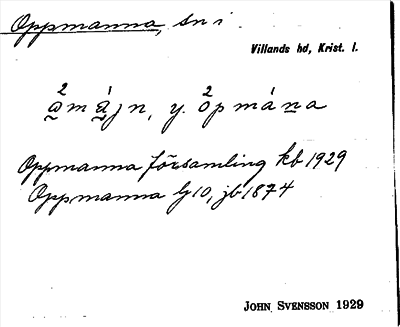 Oppmanna, sn i
Villands hd, Krist. l.
y.
Oppmanna församling kb 1929
Oppmanna lj 10, jb 1874
JOHN SVENSSON 1929